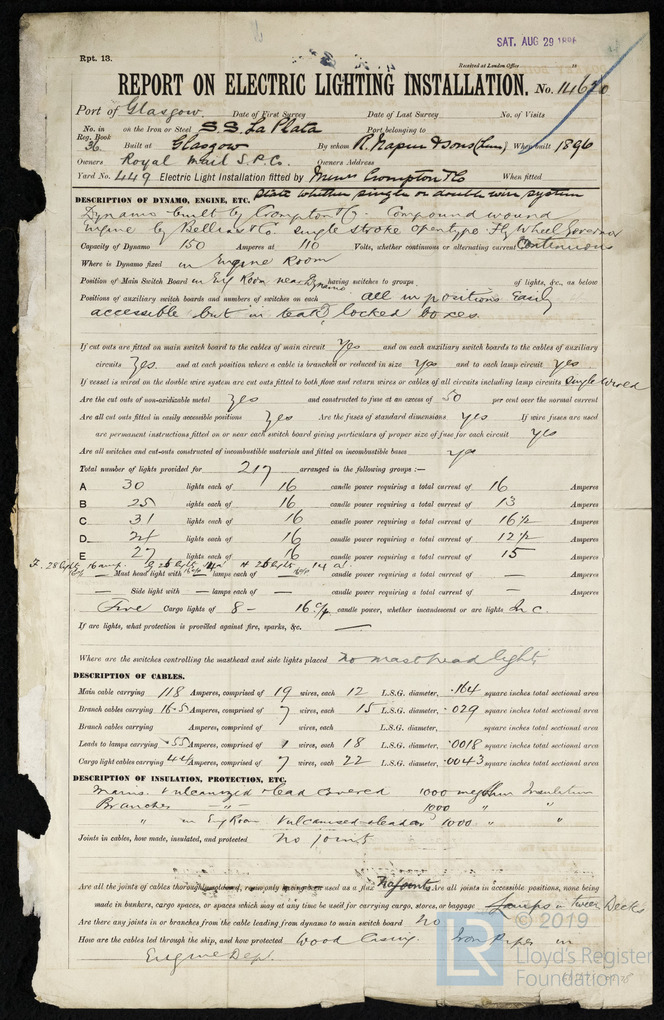 SAT. AUG 29 1896
Rpt. 13.
Received at London Office 18
REPORT ON ELECTRIC LIGHTING INSTALLATION. No. 14620
Port of Glasgow. Date of First Survey Date of Last Survey No. of Visits
No. in Reg. Book 36. on the Iron or Steel S.S. La Plata Port belonging to
Built at Glasgow By whom R. Napier & Sons (Lim) When built 1896
Owners Royal Mail S.P.Co. Owners Address
Yard No. 449 Electric Light Installation fitted by Messrs Crompton & Co When fitted
State whether single or double wire system
DESCRIPTION OF DYNAMO, ENGINE, ETC.
Dynamo built by Crompton & Co. Compound wound
Engine by Belliss & Co. single stroke open type. Fly Wheel Governor
Capacity of Dynamo 150 Amperes at 110 Volts, whether continuous or alternating current Continuous
Where is Dynamo fixed in Engine Room
Position of Main Switch Board in Eng Room near Dynamo having switches to groups of lights, &c., as below
Positions of auxiliary switch boards and numbers of switches on each all in positions easily
accessible but in teak locked boxes.
If cut outs are fitted on main switch board to the cables of main circuit yes and on each auxiliary switch boards to the cables of auxiliary
circuits yes. and at each position where a cable is branched or reduced in size yes and to each lamp circuit yes
If vessel is wired on the double wire system are cut outs fitted to both flow and return wires or cables of all circuits including lamp circuits Single wired
Are the cut outs of non-oxidizable metal yes and constructed to fuse at an excess of 50 per cent over the normal current
Are all cut outs fitted in easily accessible positions yes Are the fuses of standard dimensions yes If wire fuses are used
are permanent instructions fitted on or near each switch board giving particulars of proper size of fuse for each circuit yes
Are all switches and cut-outs constructed of incombustible materials and fitted on incombustible bases yes
Total number of lights provided for 217 arranged in the following groups :—
A 30 lights each of 16 candle power requiring a total current of 16 Amperes
B 25 lights each of 16 candle power requiring a total current of 13 Amperes
C 31 lights each of 16 candle power requiring a total current of 16½ Amperes
D 24 lights each of 16 candle power requiring a total current of 12½ Amperes
E 27 lights each of 16 candle power requiring a total current of 15 Amperes
F. 28 lights 16 amp. G 26 lights 14 a. H 26 lights 14 a.
— Mast head light with — lamps each of — candle power requiring a total current of — Amperes
— Side light with — lamps each of — candle power requiring a total current of — Amperes
Five Cargo lights of 8 – 16 c/p candle power, whether incandescent or arc lights Inc.
If arc lights, what protection is provided against fire, sparks, &c. —
Where are the switches controlling the masthead and side lights placed No masthead lights
DESCRIPTION OF CABLES.
Main cable carrying 118 Amperes, comprised of 19 wires, each 12 L.S.G. diameter, .164 square inches total sectional area
Branch cables carrying 16.5 Amperes, comprised of 7 wires, each 15 L.S.G. diameter, .029 square inches total sectional area
Branch cables carrying Amperes, comprised of wires, each L.S.G. diameter, square inches total sectional area
Leads to lamps carrying .55 Amperes, comprised of 1 wires, each 18 L.S.G. diameter, .0018 square inches total sectional area
Cargo light cables carrying 4.4 Amperes, comprised of 7 wires, each 22 L.S.G. diameter, .0043 square inches total sectional area
DESCRIPTION OF INSULATION, PROTECTION, ETC.
Mains. Vulcanized & lead covered 1000 megohm Insulation
Branches —"— 1000 " "
" in Eng Room Vulcanised & lead cov 1000 " "
Joints in cables, how made, insulated, and protected No joints
Are all the joints of cables thoroughly soldered, resin only having been used as a flux No Joints Are all joints in accessible positions, none being
made in bunkers, cargo spaces, or spaces which may at any time be used for carrying cargo, stores, or baggage Lamps in tween Decks
Are there any joints in or branches from the cable leading from dynamo to main switch board No
How are the cables led through the ship, and how protected Wood Casing. Iron Pipes in
Engine Dep.
LR
© 2019
Lloyd's Register
Foundation